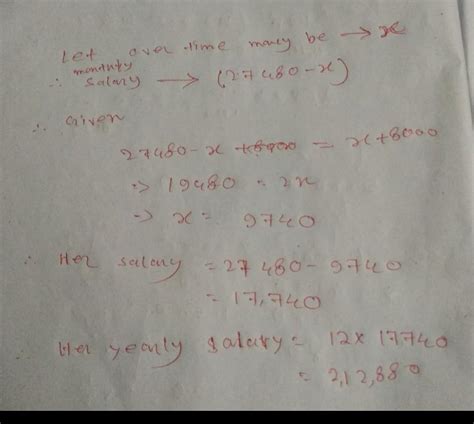 Let over time money be → x
monthly
∴ salary → (27480-x)
∴ Given
27480-x = x+8000
=> 19480 = 2x
=> x = 9740
∴ Her salary = 27480 - 9740
= 17,740
Her yearly salary = 12x 17740
= 2,12,880